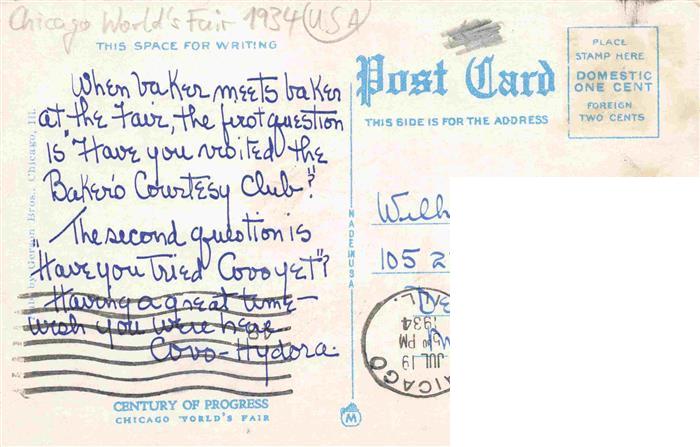 Chicago World's Fair 1934 (USA)
THIS SPACE FOR WRITING
When baker meets baker
at the Fair, the first question
is "Have you visited the
Baker's Courtesy Club?"
The second question is
"Have you tried Covo yet"?
Having a great time—
wish you were here
Covo-Hydora.
CENTURY OF PROGRESS
CHICAGO WORLD'S FAIR
Gerson Bros., Chicago, Ill.
MADE IN USA
M
Post Card
THIS SIDE IS FOR THE ADDRESS
PLACE
STAMP HERE
DOMESTIC
ONE CENT
FOREIGN
TWO CENTS
Wilh
105 2
CHICAGO
JUL 19
PM
1934